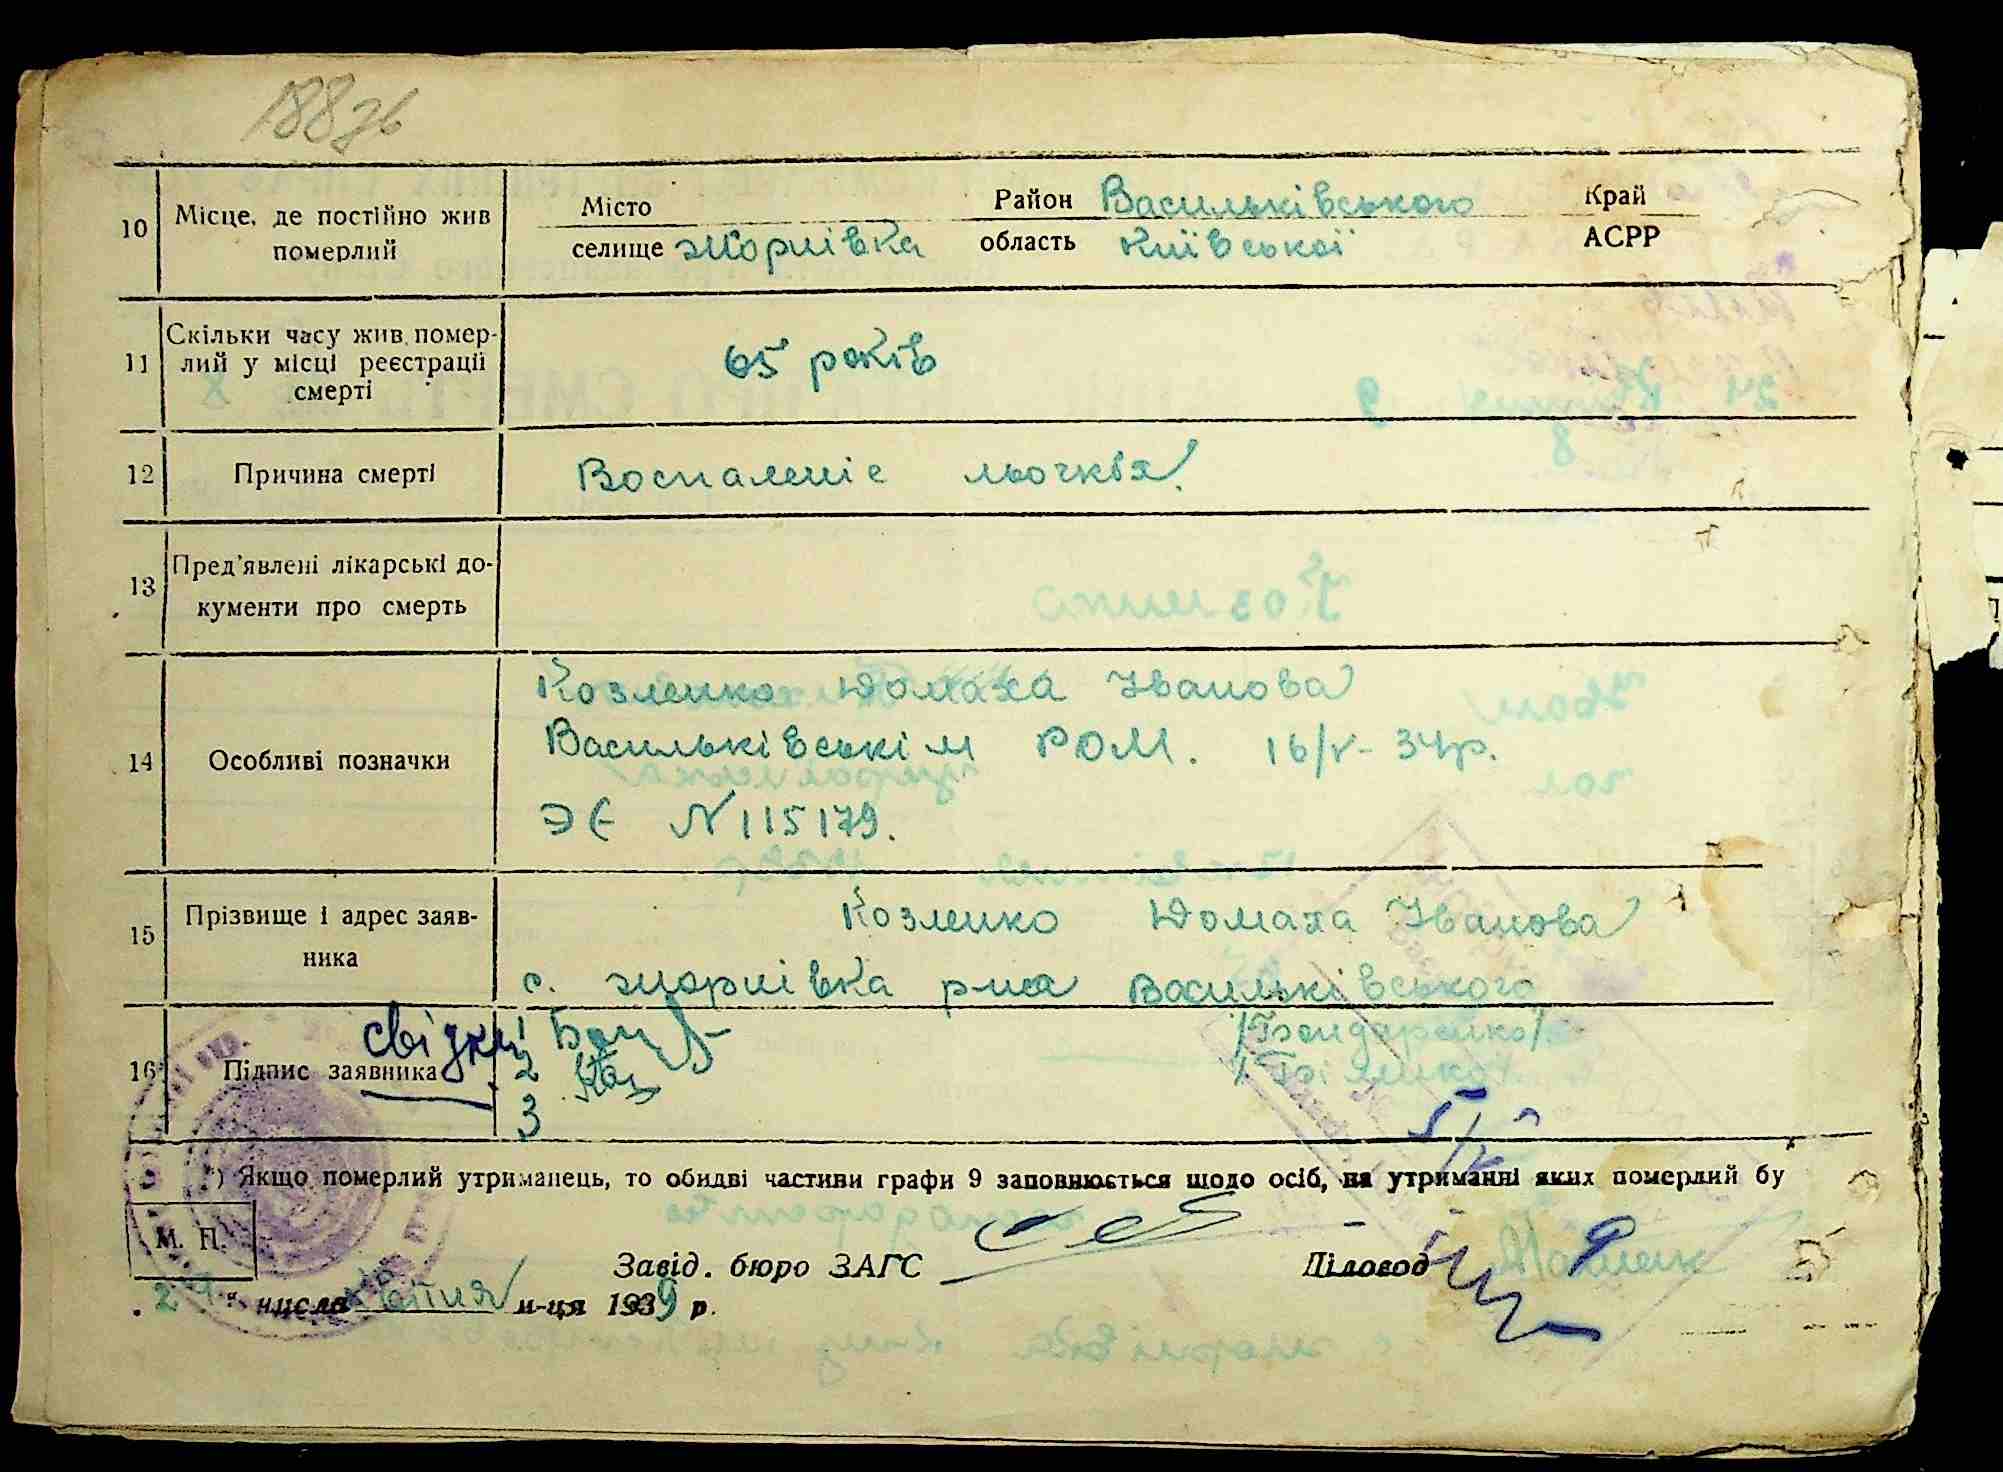 188зв
10 Місце, де постійно жив померлий
Місто Район Васильківського Край
селище Жорнівка область Київської АСРР
11 Скільки часу жив помер-
лий у місці реєстрації
смерті
65 років
12 Причина смерті Воспаленіє льочкія.
13 Пред'явлені лікарські до-
кументи про смерть
14 Особливі позначки
Козленко Домаха Іванова
Васильківськім РОМ. 16/V- 34р.
ЭЄ N 115179.
15 Прізвище і адрес заяв-
ника
Козленко Домаха Іванова
с. Жорнівка р-на Васильківського
16 Підпис заявника
свідки 1 /Бондаренко/
2
3
*) Якщо померлий утриманець, то обидві частиви графи 9 заповнюється щодо осіб, на утриманні яких померлий бу
М. П.
Завід. бюро ЗАГС Діловод
числа квітня м-ця 1939 р.